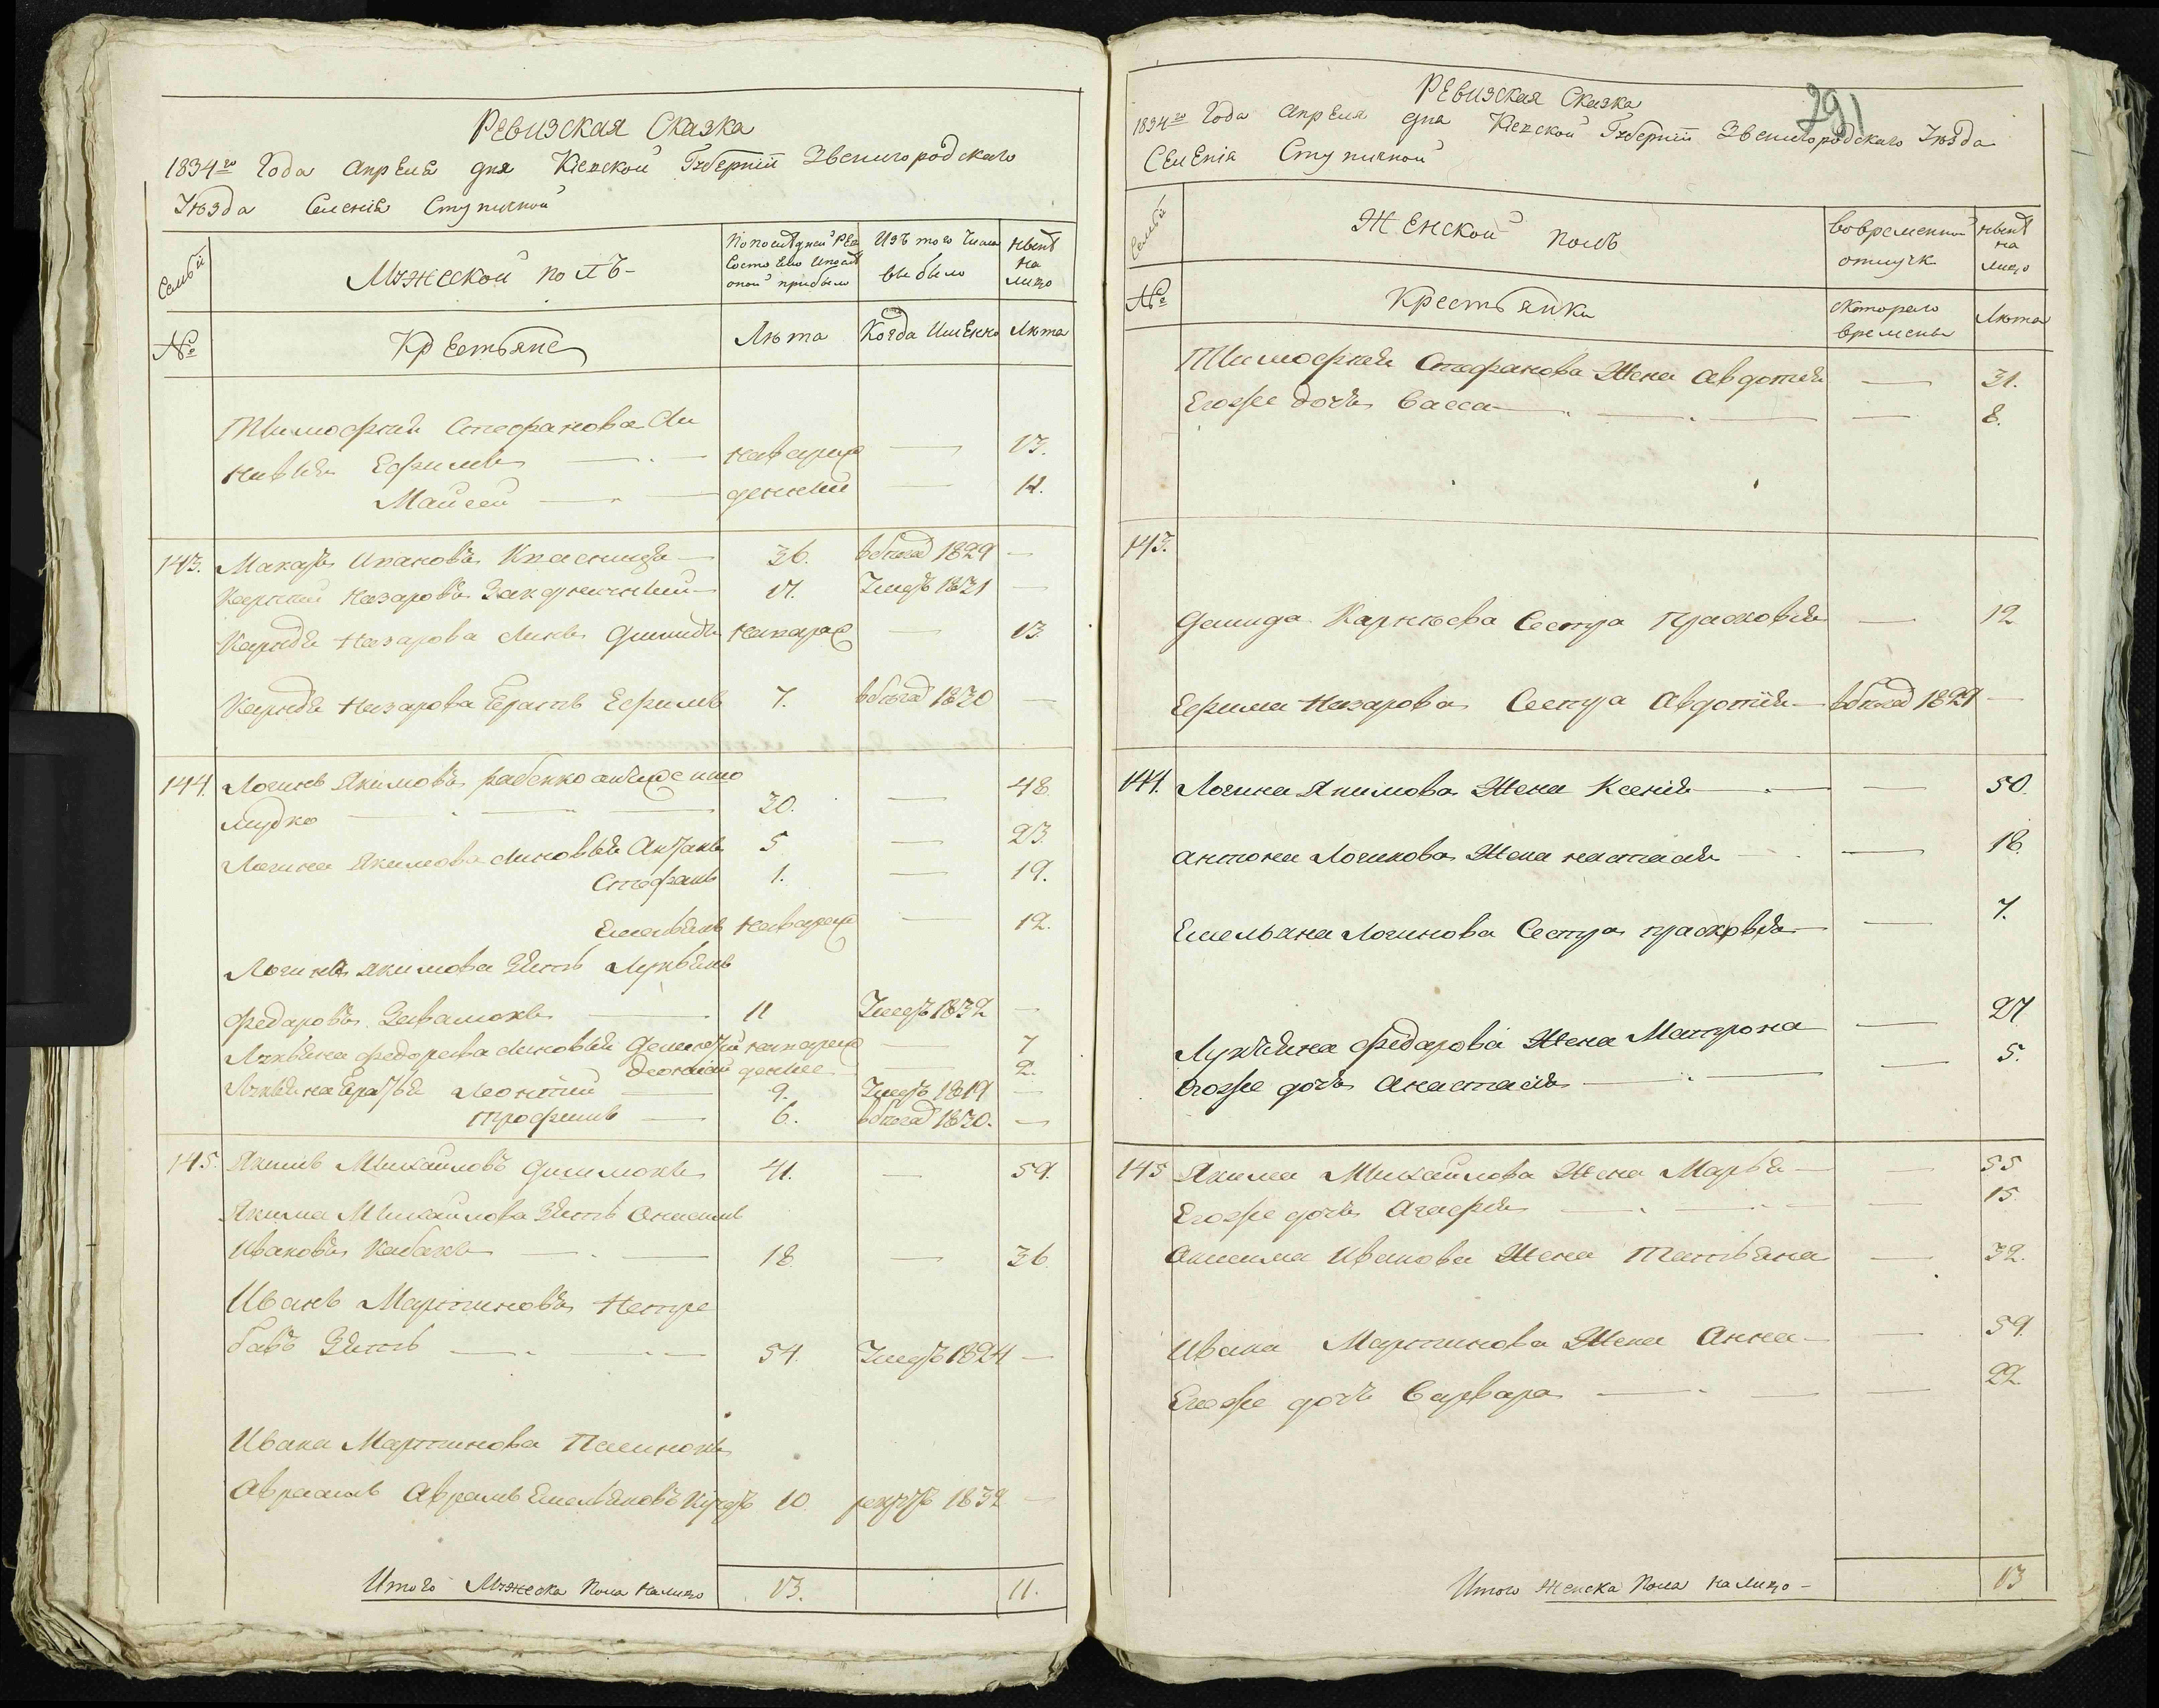 Ревизская Сказка
1834го Года Апреля дня Кіевской Губерніи Звенигородскаго
Уезда Селенія Ступичной
Семьи
Мужеской полъ
По последней Рев
Состояло и после
оной прибыло
Изъ того Числа
выбыло
Ныне
на
лицо
№
Крестьяне
Лета
Когда Именно
Лета
Тимофѣя Стефанова Сы
новья Ефимъ — новорож — 13.
Мойсей — денный — 11.
143. Макаръ Ивановъ — 36. в бегах 1829 —
Карній Назаровъ — 17. Умеръ 1821 —
Карнѣя Назарова Сынъ Демидъ новорож — 13
Карнѣя Назарова Братъ Ефимъ 7. в бегах 1830 —
144. Логинъ Якимовъ Рабенко онъ же и по
Дудко — 30. — 48.
Логина Якимова Сыновья Антонъ 5 — 23.
Стефанъ 1. — 19.
Емельянъ новорож — 12.
Логина Якимова Зять Лукьянъ
Федоровъ — 11 Умеръ 1832 —
Лукьяна Федорова Сыновья новорож — 7
денные — 2.
Лукьяна Братья Леонтий — 9. Умеръ 1819 —
Трофимъ — 6. в бегах 1830. —
145. Якимъ Михайловъ — 41. — 59.
Якима Михайлова Зять Онисимъ
Ивановъ Кабакъ — 18. — 36.
Иванъ Мартиновъ Нетре
бавъ Зять — 54. Умеръ 1824 —
Ивана Мартинова
Авраамъ Емельяновъ 10. рекрутъ 1832 —
Итого Мужеска Пола Налицо 13. 11.
291
Ревизская Сказка
1834го Года Апреля дня Кіевской Губерніи Звенигородскаго Уезда
Селенія Ступичной
Семьи
Женской полъ
Во временной
отлучке
Ныне
на
лицо
№
Крестьянки
С котораго
времены
Лета
Тимофѣя Стефанова Жена Авдотия — 31.
Егоже дочь Васса — 8.
143.
Демида Карнѣева Сестра Прасковия — 12
Ефима Назарова Сестра Авдотия — в бегах 1829 —
144. Логина Якимова Жена Ксения — 50.
Антона Логинова Жена Настасия — 18.
Емельяна Логинова Сестра Прасковья — 7.
Лукьяна Федорова Жена Матрона — 27
Егоже дочь Анастасия — 5.
145 Якима Михайлова Жена Марья — 55
Егоже дочь Агафия — 15.
Онисима Иванова Жена Татьяна — 32.
Ивана Мартинова Жена Анна — 59.
Егоже дочь Варвара — 22
Итого Женска Пола На лицо — 13